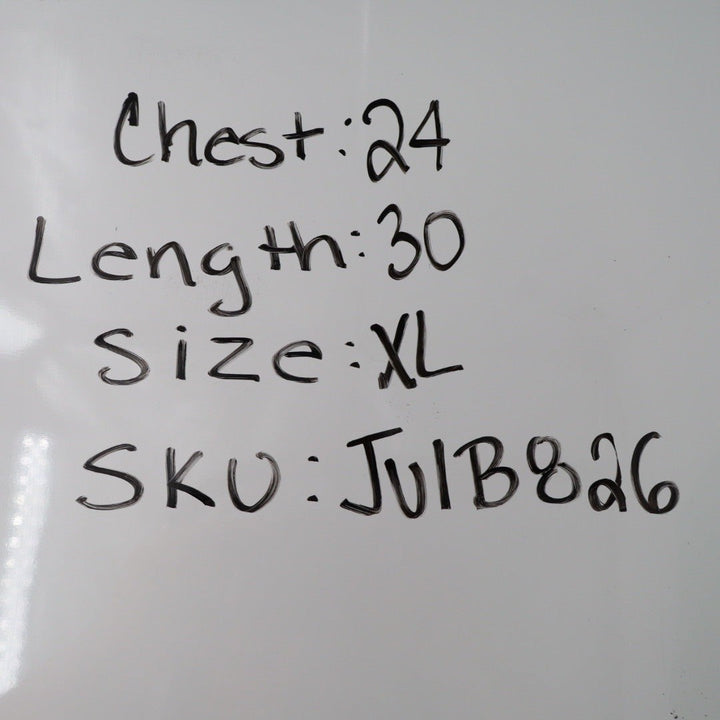 Chest:24
Length:30
Size:XL
SKU:JulB826